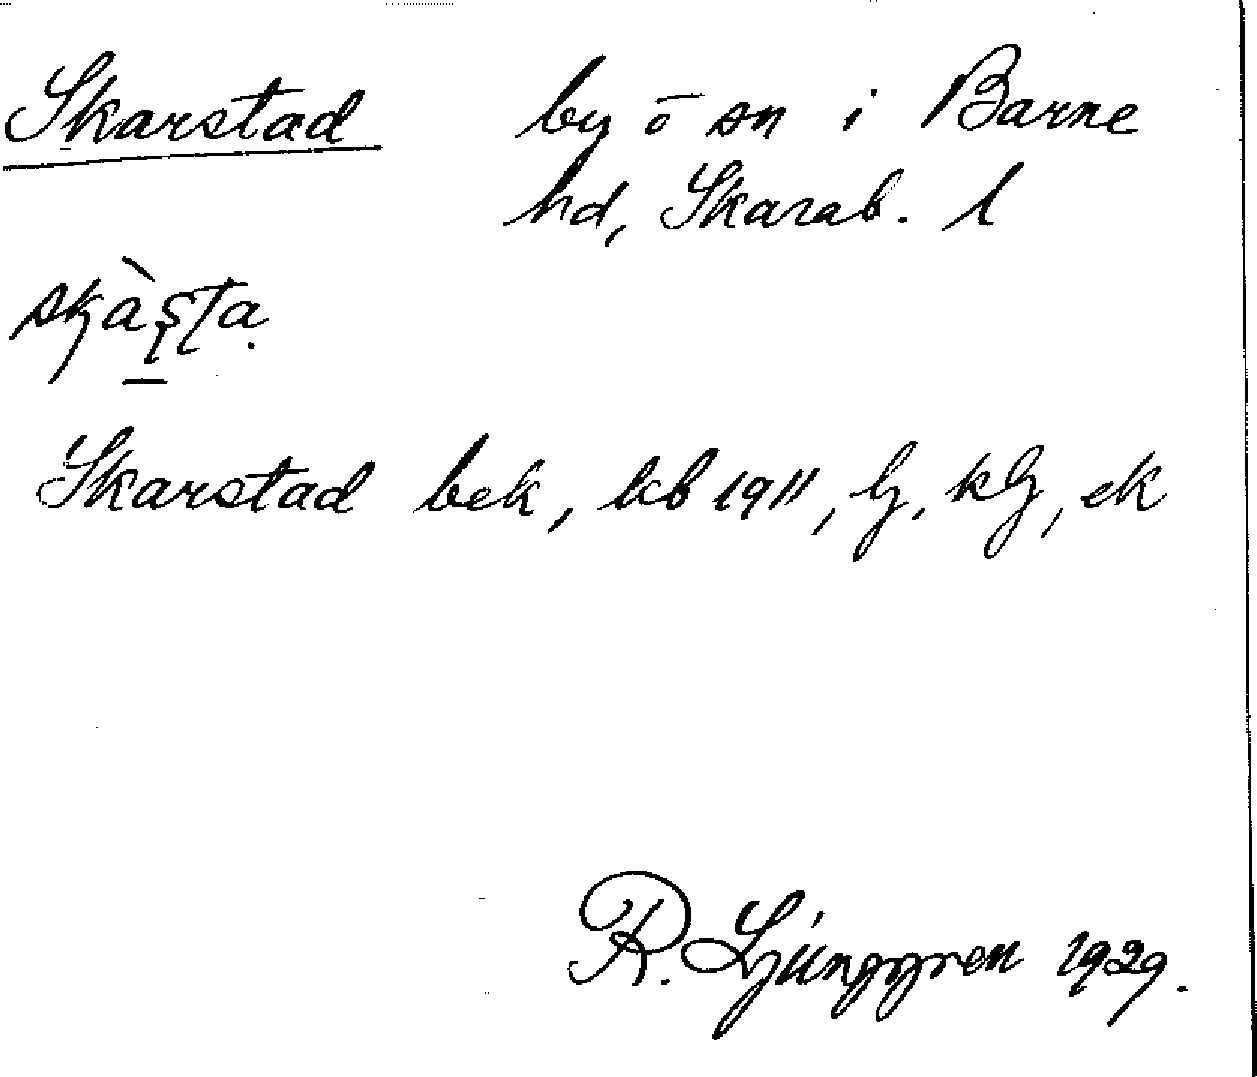 Skarstad by o sn i Barne
hd, Skarab. l
skàʂʈa
Skarstad bek, kb 1911, lj, klj, ek
R. Ljunggren 1929.